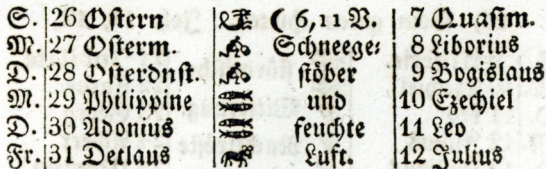 S. 26 Ostern ☾ 6, 11 V. 7 Quasim.
M. 27 Osterm. Schneege⸗ 8 Liborius
D. 28 Osterdnst. stöber 9 Bogislaus
M. 29 Philippine und 10 Ezechiel
D. 30 Adonius feuchte 11 Leo
Fr. 31 Detlaus Luft. 12 Julius